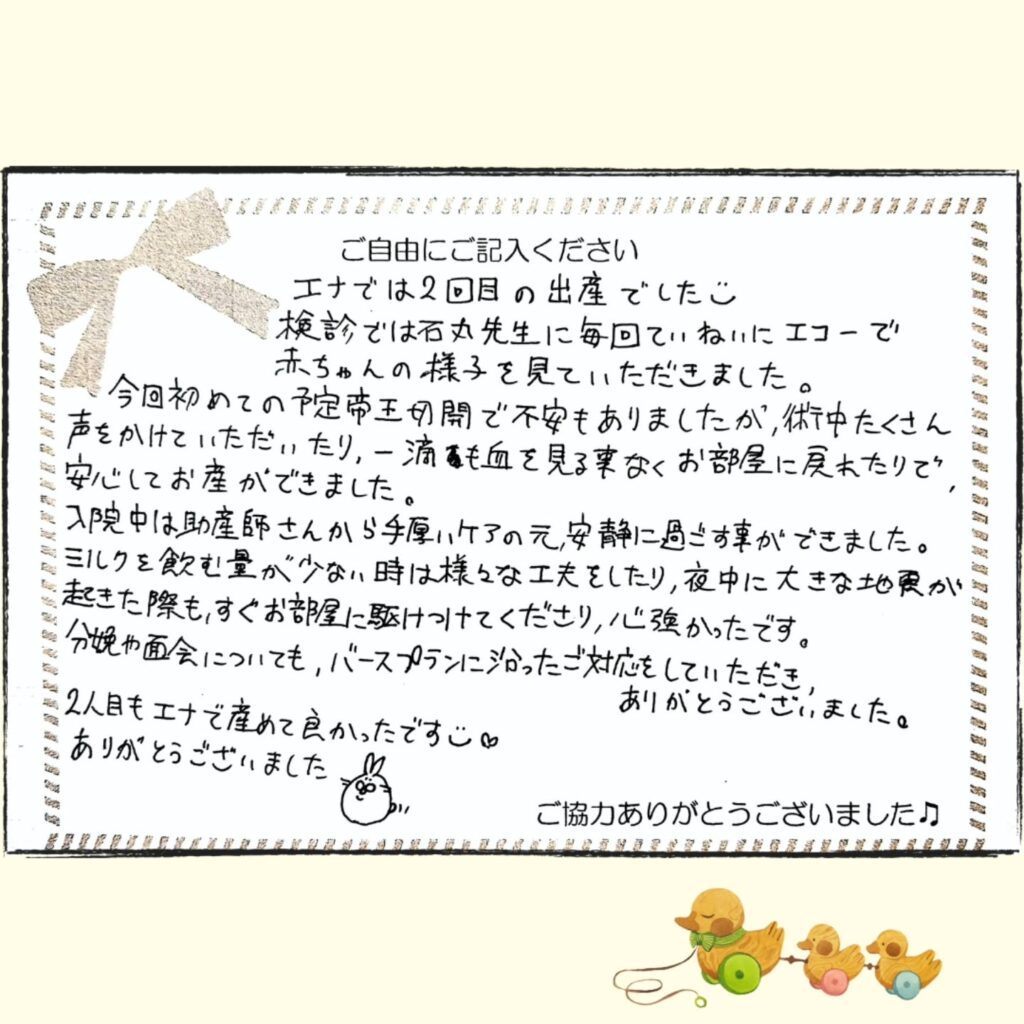 ご自由にご記入ください
エナでは2回目の出産でした
検診では石丸先生に毎回ていねいにエコーで
赤ちゃんの様子を見ていただきました。
今回初めての予定帝王切開で不安もありましたが、術中たくさん
声をかけていただいたり、一滴も血を見る事なくお部屋に戻れたりで、
安心してお産ができました。
入院中は助産師さんから手厚いケアの元、安静に過ごす事ができました。
ミルクを飲む量が少ない時は様々な工夫をしたり、夜中に大きな地震が
起きた際も、すぐお部屋に駆けつけてくださり、心強かったです。
分娩や面会についても、バースプランに沿ったご対応をしていただき、
ありがとうございました。
2人目もエナで産めて良かったです
ありがとうございました
ご協力ありがとうございました♫